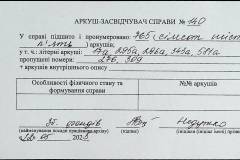 АРКУШ-ЗАСВІДЧУВАЧ СПРАВИ № 140
У справі підшито і пронумеровано 765 (сімсот шіст
п'ять) аркушів,
у т.ч.: літерні аркуші 7а, 295а, 296а, 343а, 581а
пропущені номери 276, 309
+ аркушів внутрішнього опису
Особливості фізичного стану та формування справи
№№ аркушів
(підпис)
05